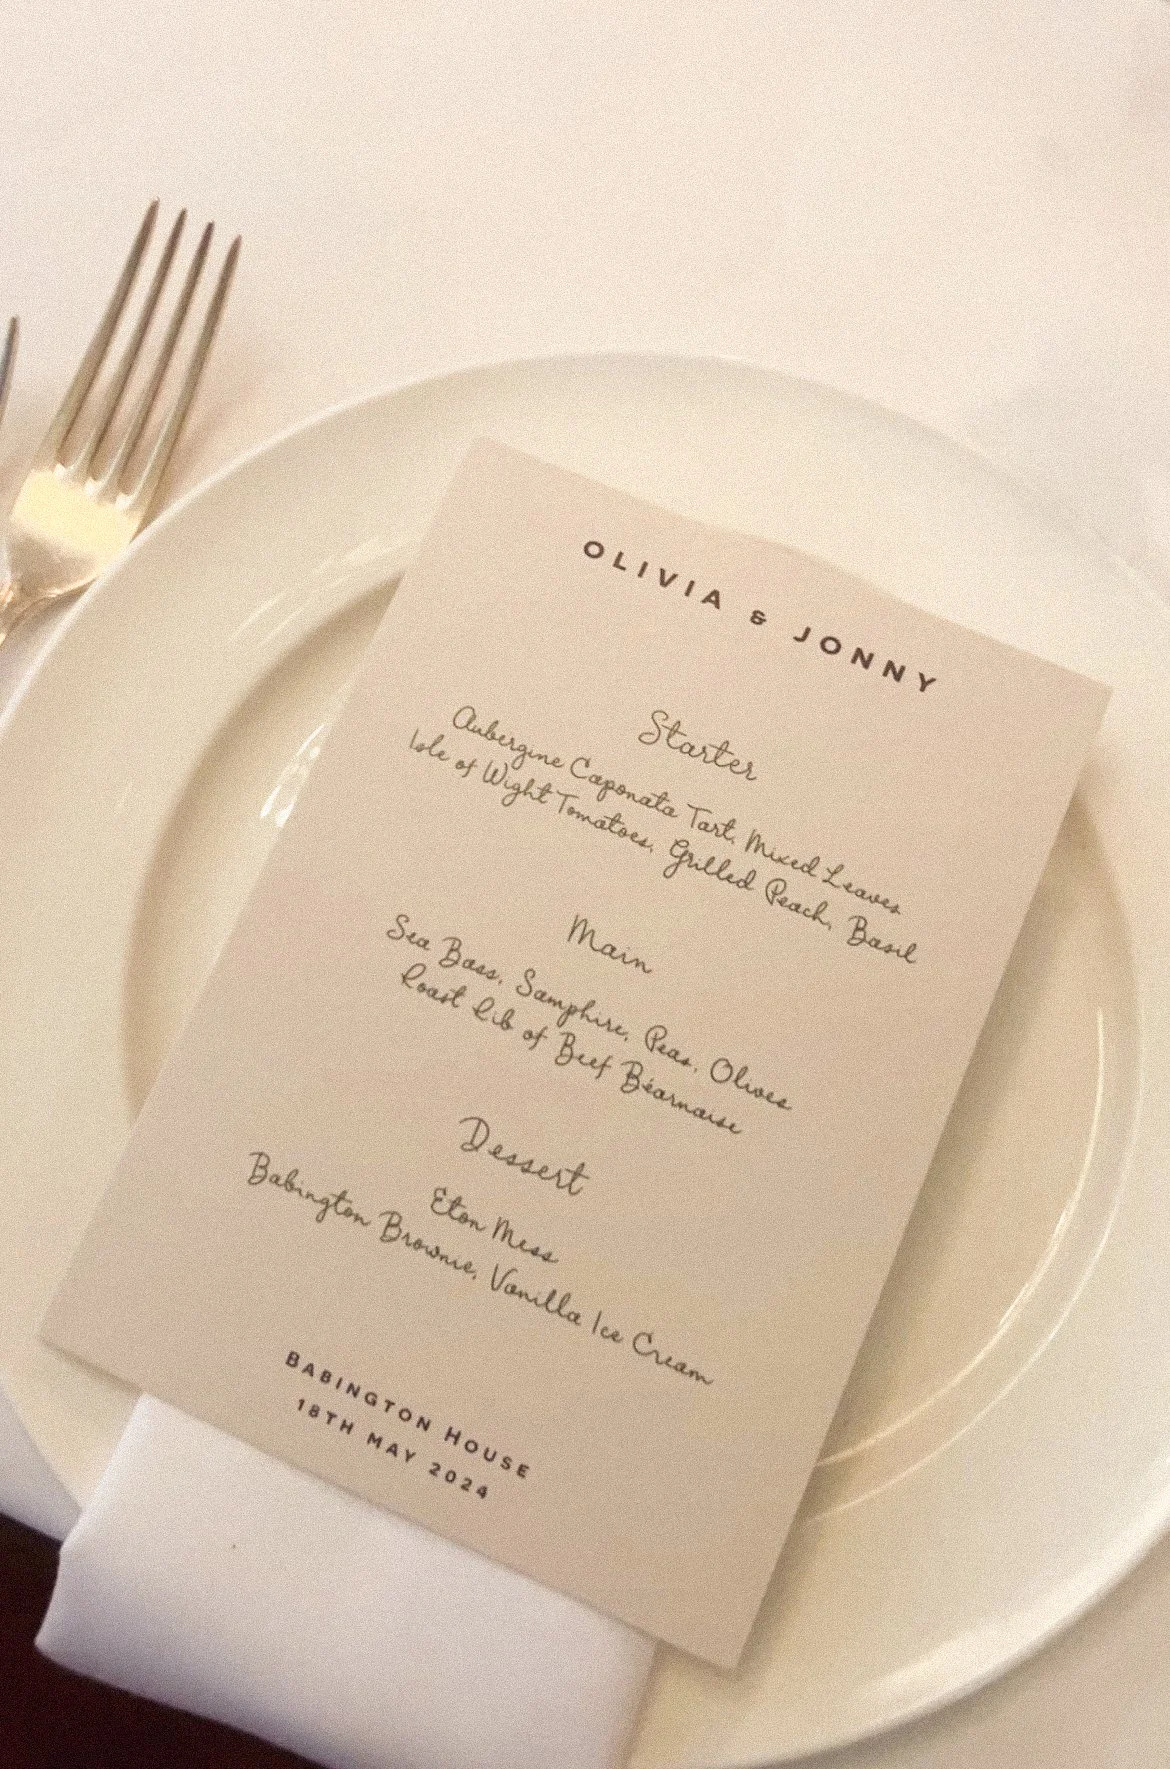 OLIVIA & JONNY
Starter
Aubergine Caponata Tart, Mixed Leaves
Isle of Wight Tomatoes, Grilled Peach, Basil
Main
Sea Bass, Samphire, Peas, Olives
Roast Rib of Beef Béarnaise
Dessert
Eton Mess
Babington Brownie, Vanilla Ice Cream
BABINGTON HOUSE
18TH MAY 2024